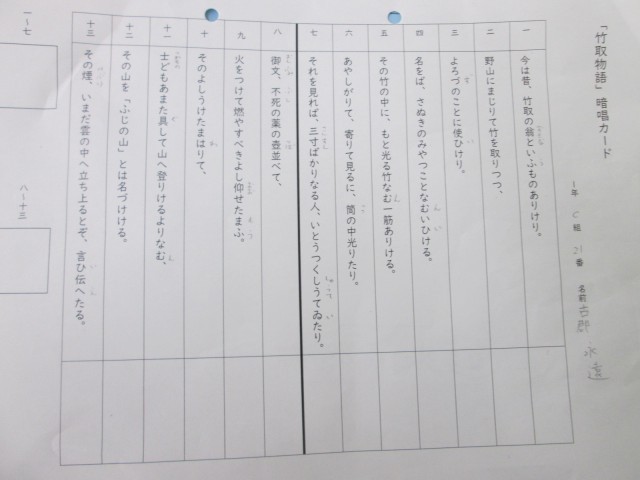 「竹取物語」暗唱カード
一年 C組 21番 名前 古郡 永遠
一 今は昔、竹取の翁といふものありけり。
二 野山にまじりて竹を取りつつ、
三 よろづのことに使ひけり。
四 名をば、さぬきのみやつことなむいひける。
五 その竹の中に、もと光る竹なむ一筋ありける。
六 あやしがりて、寄りて見るに、筒の中光りたり。
七 それを見れば、三寸ばかりなる人、いとうつくしうてゐたり。
八 御文、不死の薬の壺並べて、
九 火をつけて燃やすべきよし仰せたまふ。
十 そのよしうけたまはりて、
十一 士どもあまた具して山へ登りけるよりなむ、
十二 その山を「ふじの山」とは名づけける。
十三 その煙、いまだ雲の中へ立ち上るとぞ、言ひ伝へたる。
一〜七
八〜十三